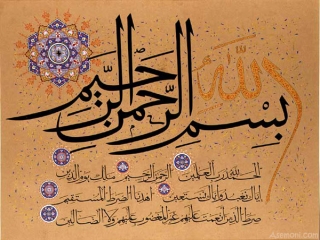 الله
بسم الله الرحمن الرحيم
الحمد لله رب العالمين الرحمن الرحيم مالك يوم الدين
إياك نعبد وإياك نستعين اهدنا الصراط المستقيم
صراط الذين أنعمت عليهم غير المغضوب عليهم ولا الضالين